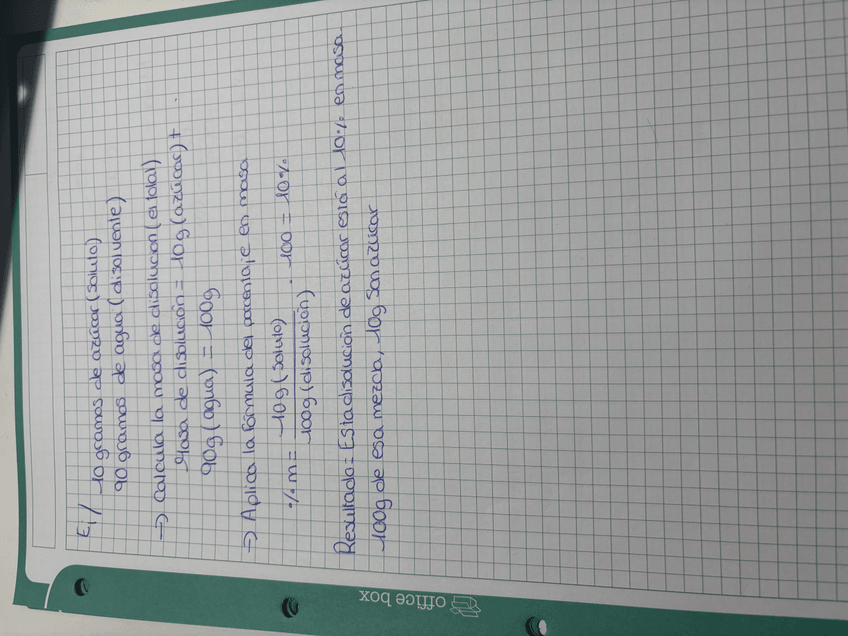 Ej/ 10 gramos de azúcar (soluto)
90 gramos de agua (disolvente)
→ Calcula la masa de disolución (el total)
Masa de disolución = 10g (azúcar) +
90g (agua) = 100g
→ Aplica la fórmula del porcentaje en masa
% m = 10g (soluto) / 100g (disolución) · 100 = 10%
Resultado = Esta disolución de azúcar está al 10% en masa
100g de esa mezcla, 10g son azúcar
office box